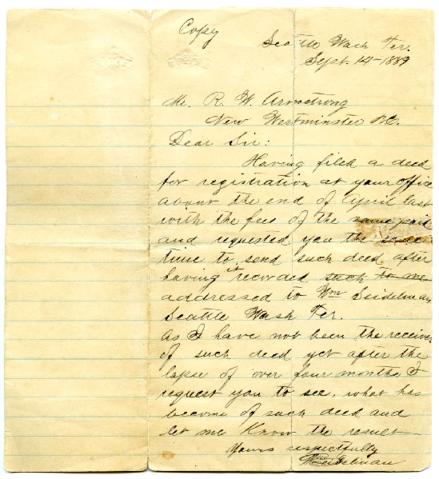 Copy
Seattle Wash Ter.
Sept. 14 - 1889
Mr. R. W. Armstrong
New Westminster B.C.
Dear Sir:
Having filed a deed
for registration at your office
about the end of April last
with the fees of the same paid
and requested you the same
time to send such deed after
having it recorded such to me
addressed to Wm Seidelman
Seattle Wash Ter.
As I have not been the receiver
of such deed yet after the
lapse of over four months I
request you to see, what has
become of such deed and
let me Know the result
Yours respectfully
Wm Seidelman